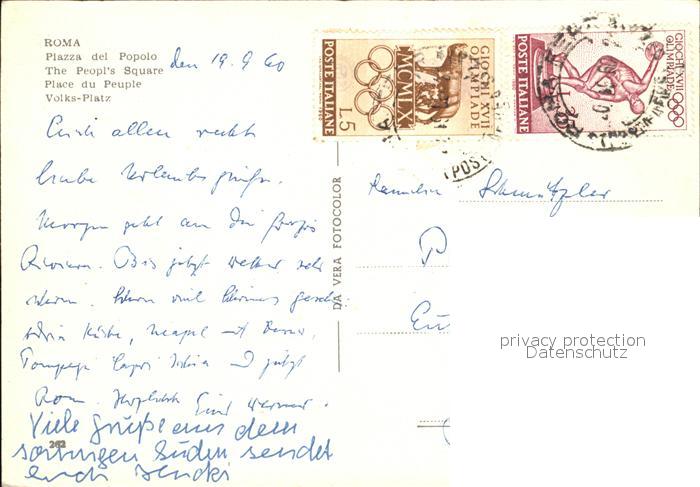 ROMA
Piazza del Popolo
The Peopl's Square
Place du Peuple
Volks-Platz
den 19.9.60
Euch allen recht
liebe Urlaubsgrüße.
Morgen geht an die
Riviera. Bis jetzt Wetter sehr
warm. Schon viel Schönes
Küste, Neapel
Pompeji Capri Ischia jetzt
Rom. Herzlichst Euer Werner.
Viele Grüße aus dem
sonnigen Süden sendet
Euch
262
DA VERA FOTOCOLOR
POSTE ITALIANE
L.5
MCMLX
GIOCHI XVII OLIMPIADE
POSTE ITALIANE
GIOCHI XVII OLIMPIADE
ROMA
Familie Schnitzler
privacy protection
Datenschutz